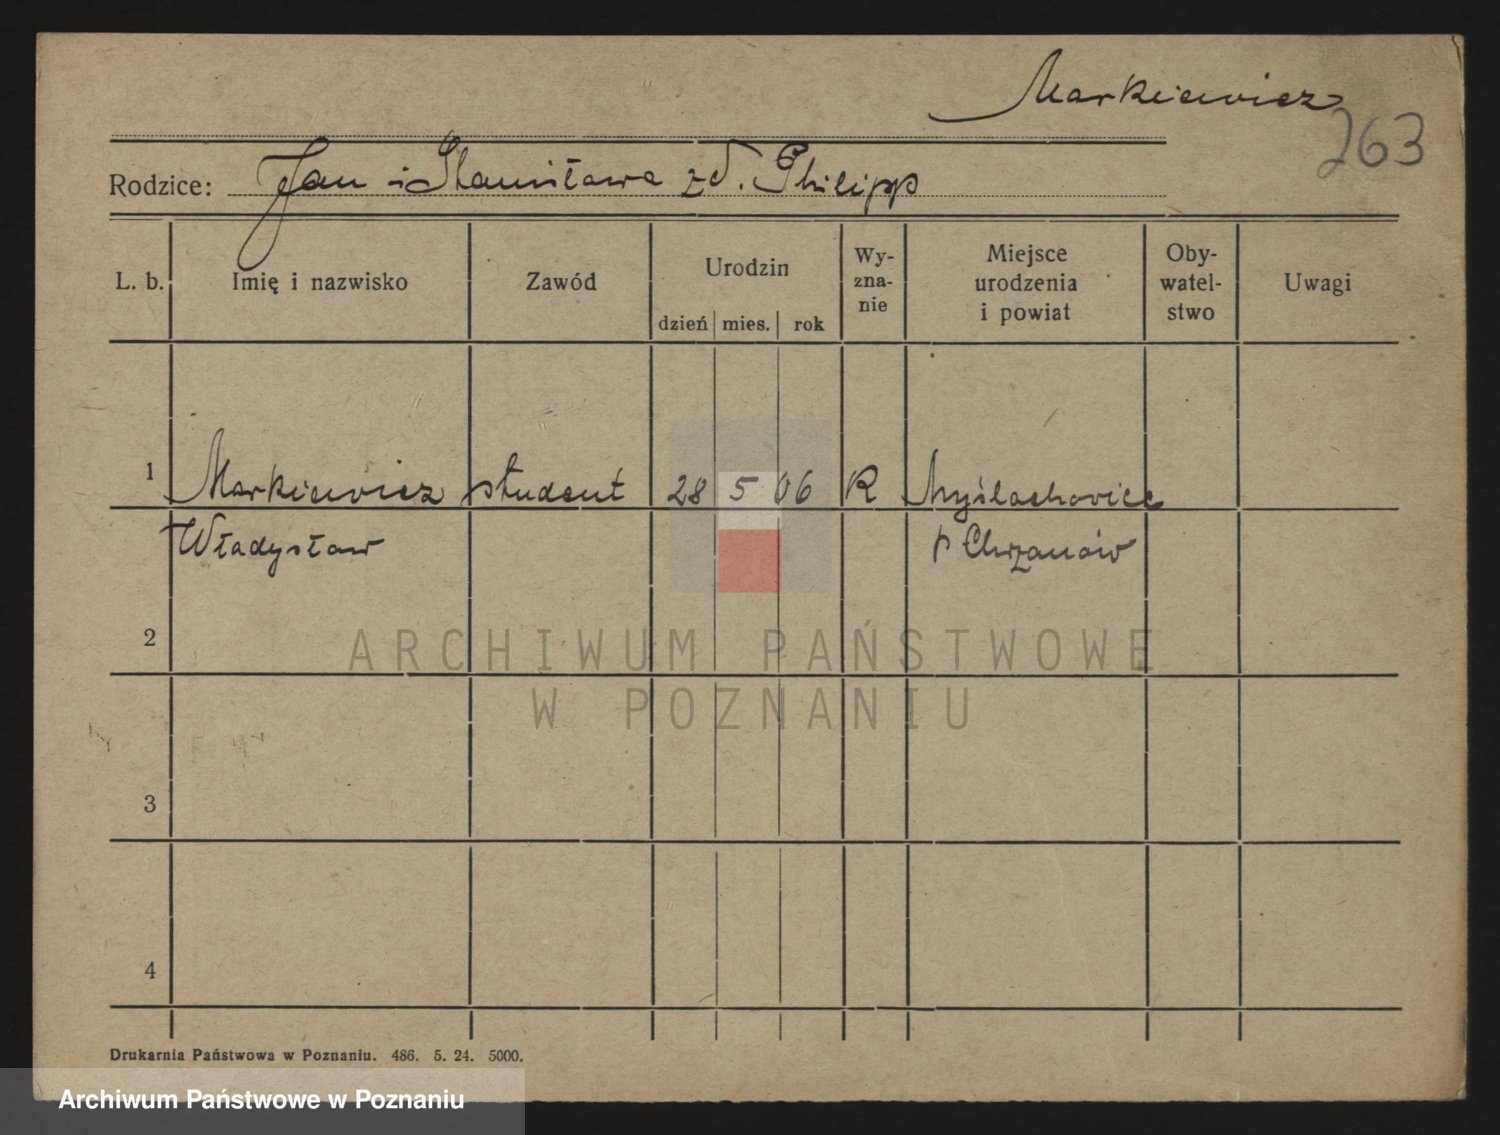 Markiewicz
263
Rodzice: Jan i Stanisława zd. Philipp
L. b. Imię i nazwisko Zawód Urodzin dzień mies. rok Wy-zna-nie Miejsce urodzenia i powiat Oby-watel-stwo Uwagi
1 Markiewicz student 28 5 06 R Myślachovice
Władysław p Chrzanów
2
ARCHIWUM PAŃSTWOWE
W POZNANIU
3
4
Drukarnia Państwowa w Poznaniu. 486. 5. 24. 5000.
Archiwum Państwowe w Poznaniu